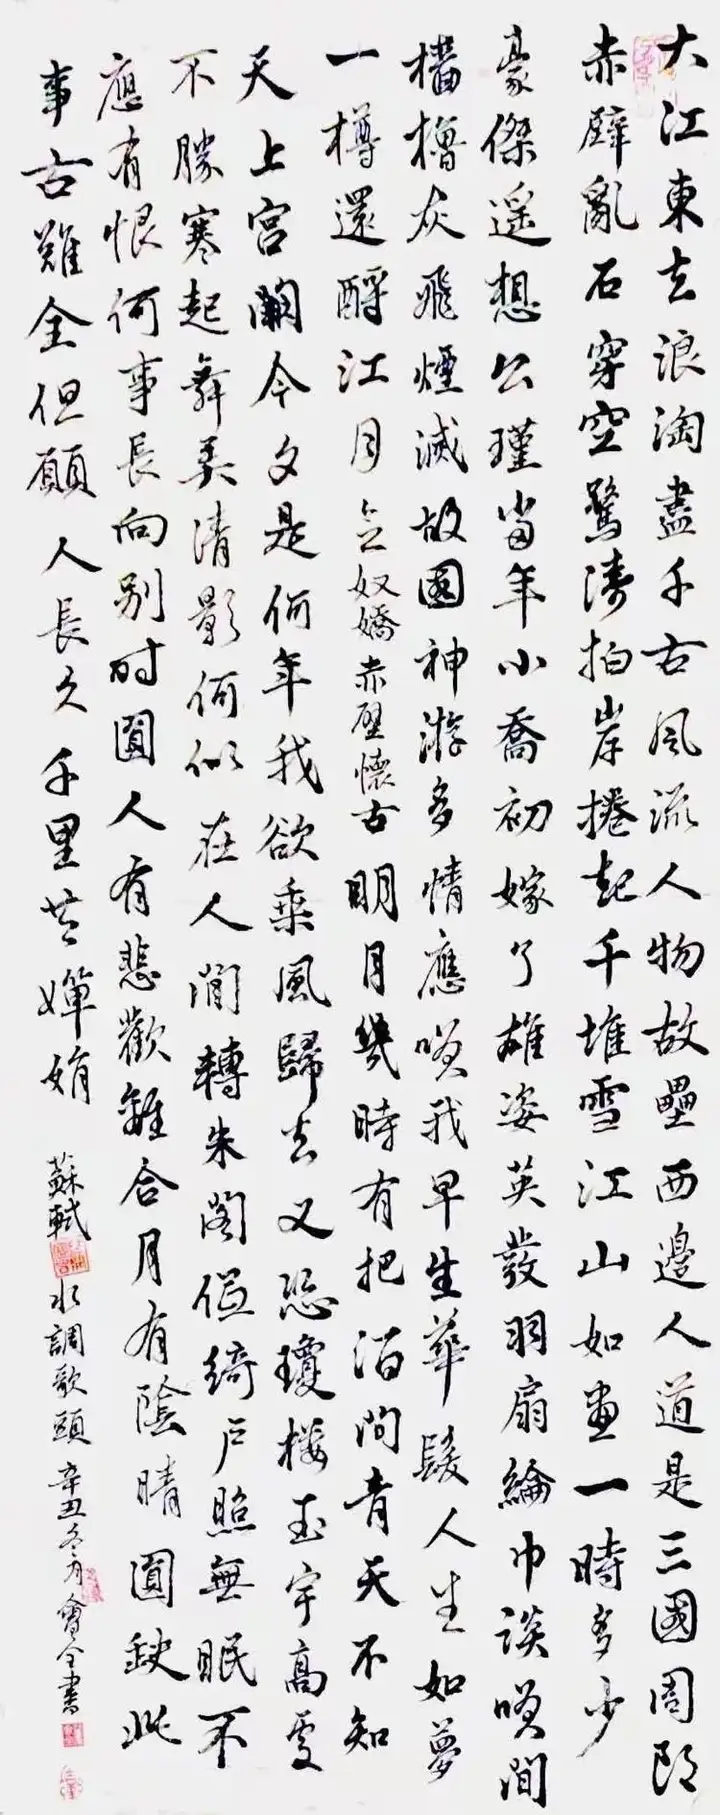 大江東去浪淘盡千古風流人物故壘西邊人道是三國周郎
赤壁亂石穿空驚濤拍岸捲起千堆雪江山如畫一時多少
豪傑遙想公瑾當年小喬初嫁了雄姿英發羽扇綸巾談笑間
檣櫓灰飛煙滅故國神游多情應笑我早生華髮人生如夢
一樽還酹江月念奴嬌赤壁懷古明月幾時有把酒問青天不知
天上宮闕今夕是何年我欲乘風歸去又恐瓊樓玉宇高處
不勝寒起舞弄清影何似在人間轉朱閣低綺戶照無眠不
應有恨何事長向別时圓人有悲歡離合月有陰晴圓缺此
事古難全但願人長久千里共嬋娟蘇軾水調歌頭辛丑冬月會全書